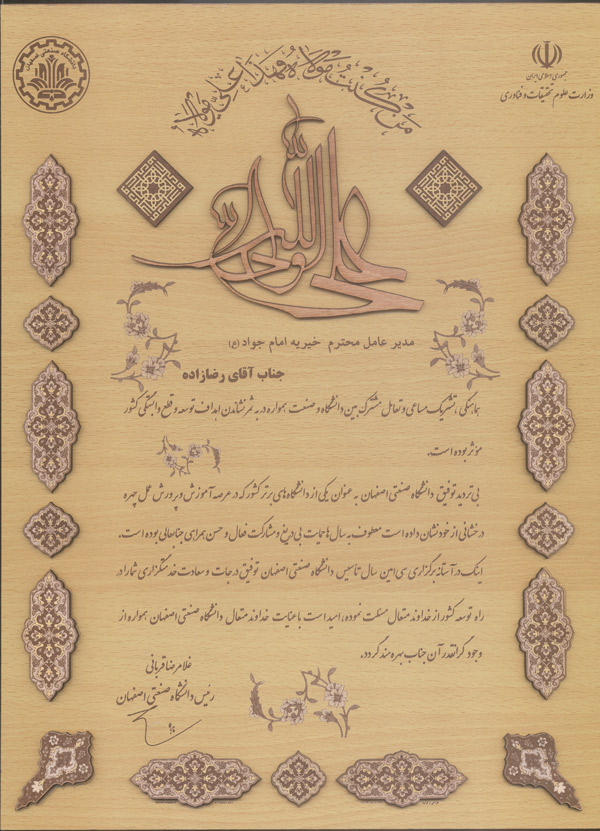 دانشگاه صنعتی اصفهان
جمهوری اسلامی ایران
وزارت علوم تحقیقات و فناوری
من کنت مولاه فهذا علی مولاه
علی ولی الله
مدیر عامل محترم خیریه امام جواد (ع)
جناب آقای رضازاده
هماهنگی، تشریک مساعی و تعامل مشترک بین دانشگاه و صنعت همواره در به ثمر نشاندن اهداف توسعه و قطع وابستگی کشور
موثر بوده است.
بی تردید توفیق دانشگاه صنعتی اصفهان به عنوان یکی از دانشگاه های برتر کشور که در عرصه آموزش و پرورش عمل چهره
درخشانی از خود نشان داده است معطوف به سال ها حمایت بی دریغ و مشارکت فعال و حسن همراهی جنابعالی بوده است.
اینک در آستانه برگزاری سی امین سال تاسیس دانشگاه صنعتی اصفهان توفیق درجات و سعادت خدمتگزاری شما را در
راه توسعه کشور از خداوند متعال مسئلت نموده، امید است با عنایت خداوند متعال دانشگاه صنعتی اصفهان همواره از
وجود گرانقدر آن جناب بهره مند گردد.
غلامرضا قربانی
رئیس دانشگاه صنعتی اصفهان